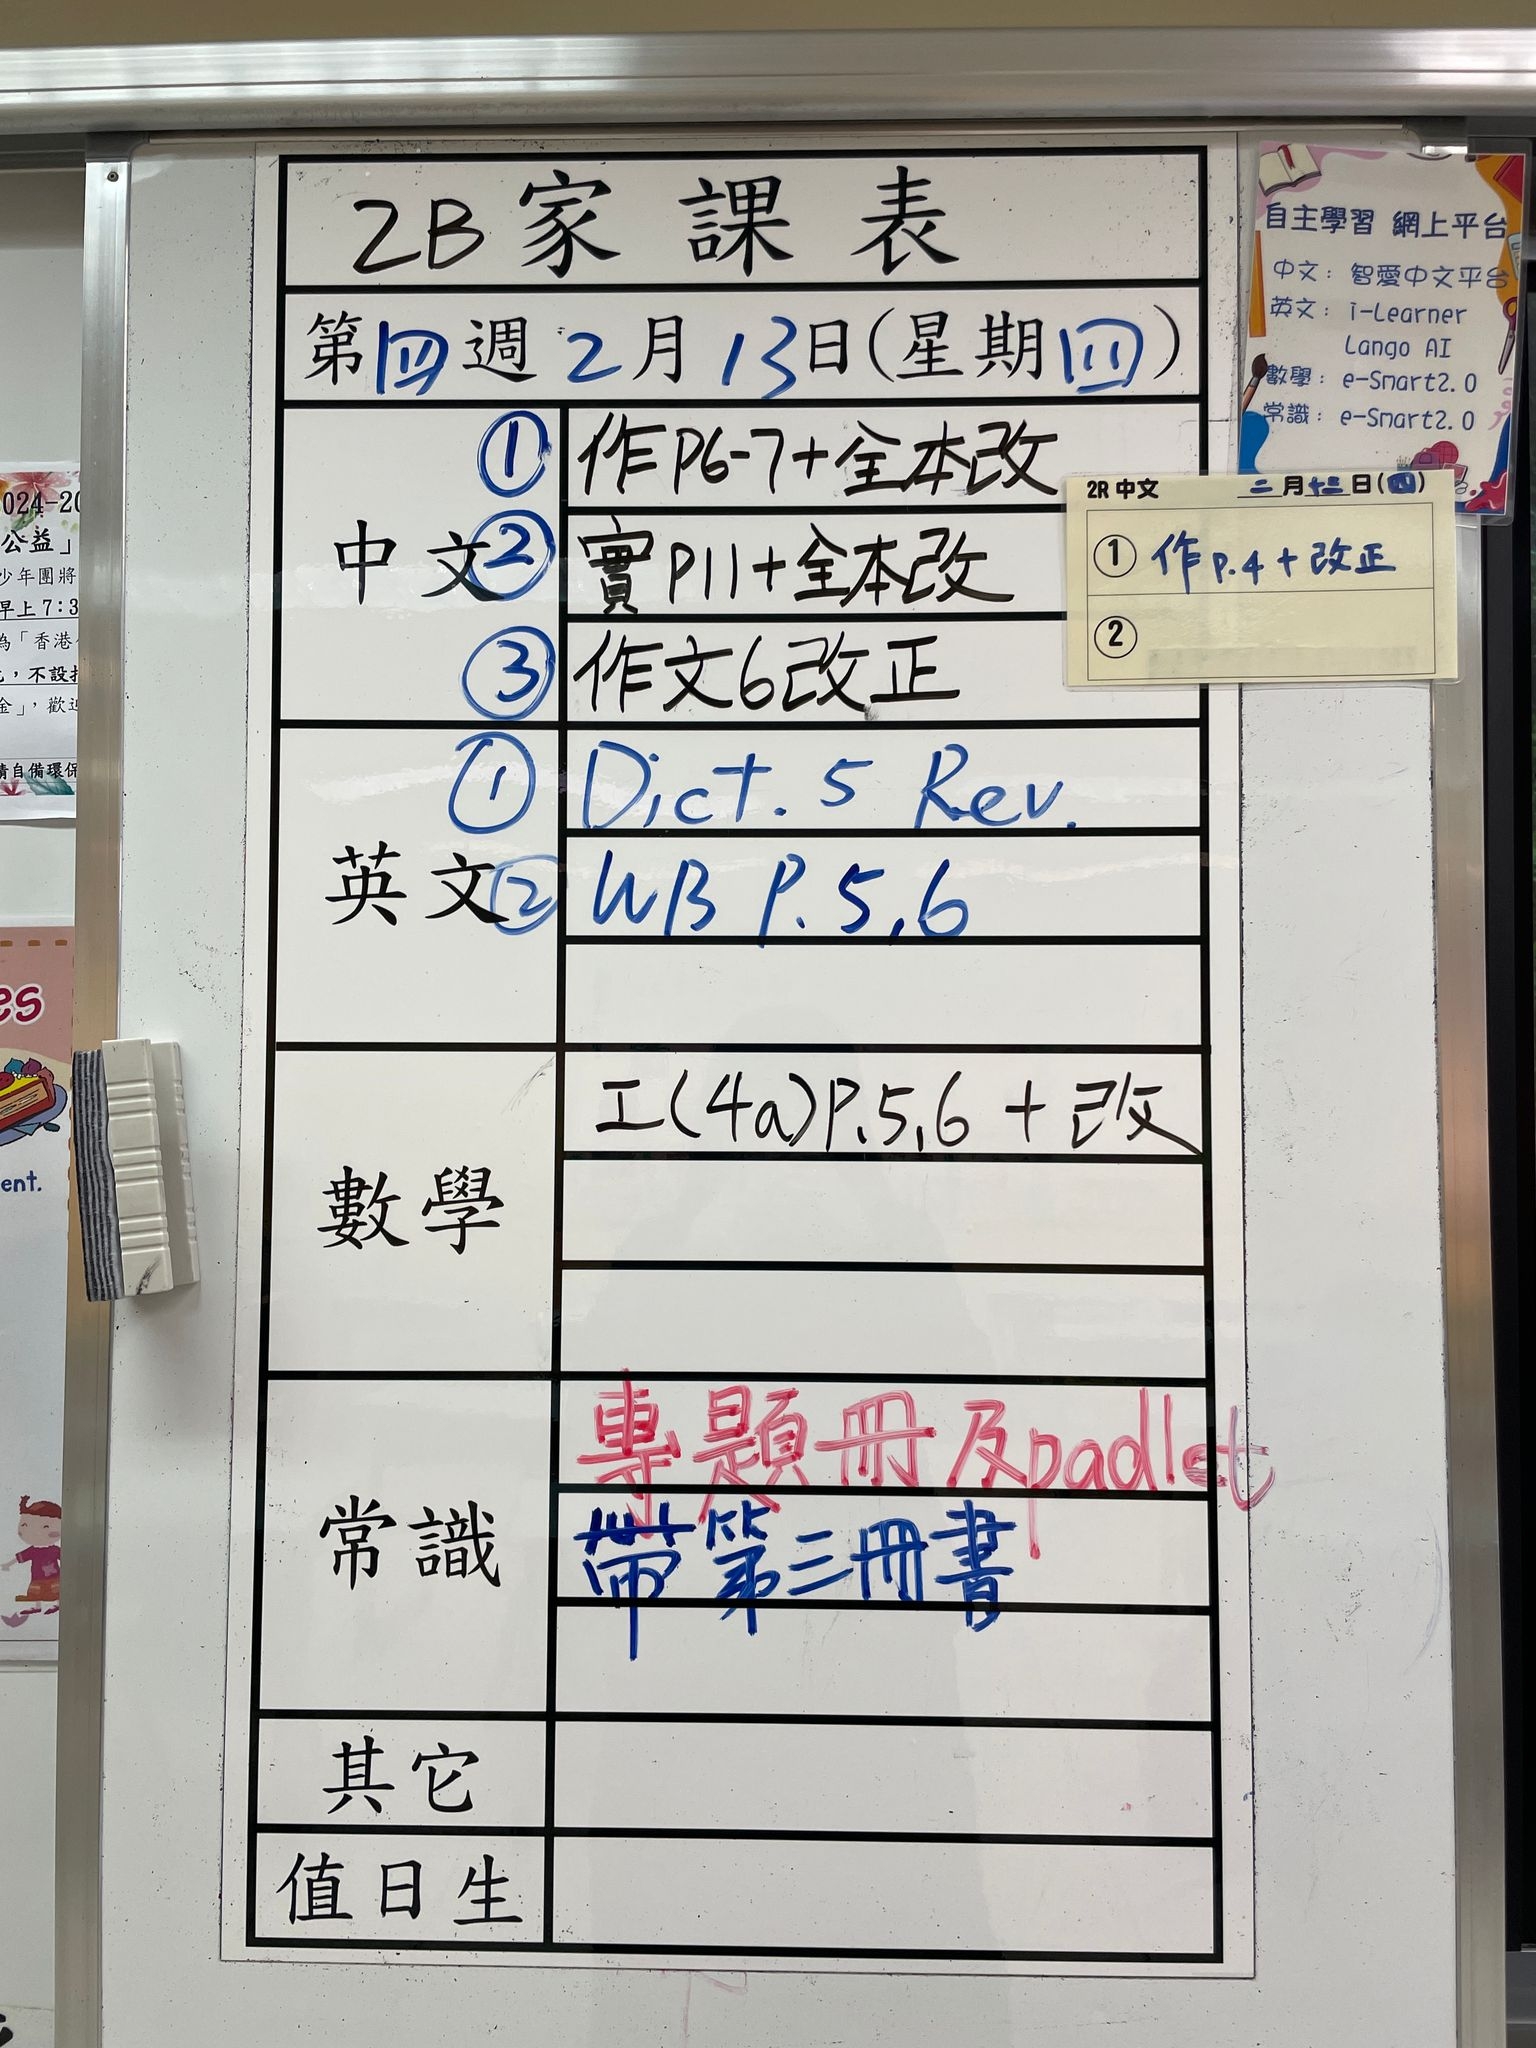 2B家課表
第四週2月13日(星期四)
中文
① 作P6-7+全本改
② 實P11+全本改
③ 作文6改正
英文
① Dict. 5 Rev.
② WB P.5,6
數學
工(4a)P.5,6 + 改
常識
專題冊及padlet
帶第三冊書
其它
值日生
自主學習 網上平台
中文：智愛中文平台
英文：i-Learner
Lango AI
數學：e-Smart2.0
常識：e-Smart2.0
2R 中文 二月十三日(四)
① 作 P.4 + 改正
②
024-20
公益」
少年團將
早上7:3
為「香港
，不設
金」，歡迎
請自備環保
es
ent.